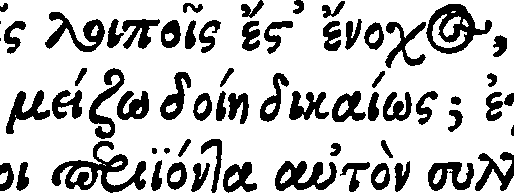 ς λοιποῖς ἔς' ἔνοχος,
μείζω δοίη δικαίως; ἐ
οι προϊόντα αὐτὸν συλ